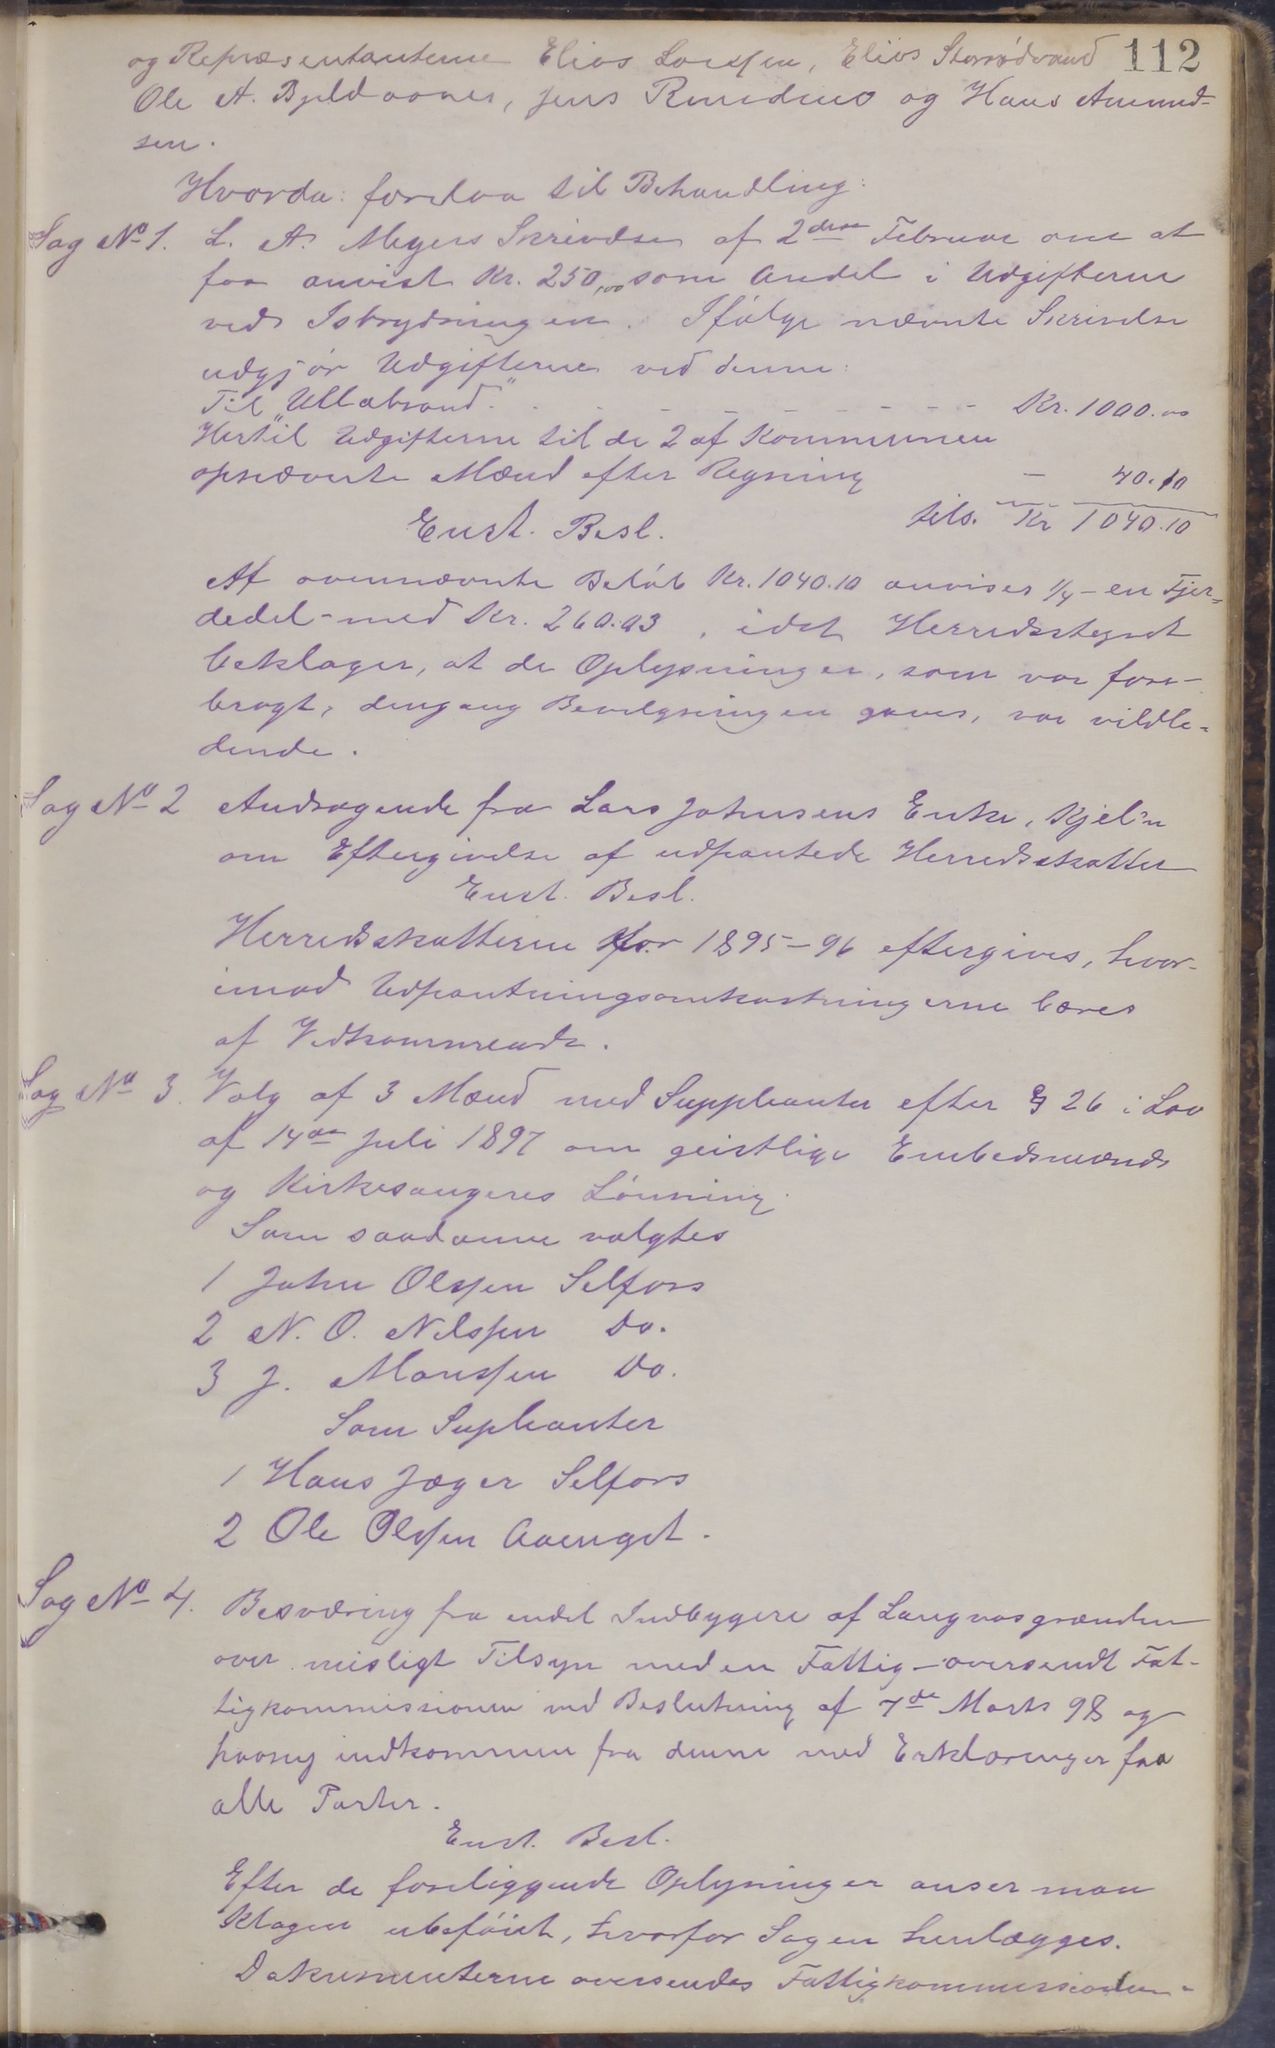 112
og Repræsentanterne Elias Larssen, Elias Storrødvand
Ole A. Bjeldaanes, Jens og Hans Amund-
sen.
Hvorda: forelaa til Behandling:
Sag No 1. L. A. Meyers Skrivelse af 2den Februar om at
faa anvist Kr. 250,00 som Andel i Udgifterne
ved Isbrydningen. Ifølge nævnte Skrivelse
udgjør Udgifterne ved denne:
Til "Ullabrand" . . - - - - - - - - Kr. 1000.00
Hertil Udgifterne til de 2 af Kommunen
opnævnte Mænd efter Regning - 40.10
tils. Kr 1040.10
Enst. Besl.
Af ovennævnte Beløb Kr. 1040.10 anvises 1/4 - en Fjer-
dedel - med Kr. 260.03, idet Herredsstyret
beklager, at de Oplysninger, som var frem-
bragt, dengang Bevilgningen gaves, var vildle-
dende.
Sag No 2 Andragende fra Lars Johnsens Enke, Kjeln
om Eftergivelse af udpantede Herredsskatter
Enst. Besl.
Herredsskatterne for 1895-96 eftergives, hvor-
imod Udpantningsomkostningerne bæres
af Vedkommende.
Sag No 3. Valg af 3 Mænd med Suppleanter efter § 26 i Lov
af 14de Juli 1897 om geistlige Embedsmænds
og Kirkesangeres Lønning.
Som saadanne valgtes
1 John Olssen Selfors
2 N. O. Nilssen Do.
3 J. Monssen Do.
Som Supleanter
1 Hans Jæger Selfors
2 Ole Olssen Aaenget.
Sag No 4. Besværing fra endel Indbygere af Langvasgrænden
over misligt Tilsyn med en Fattig - oversendt Fat-
tigkommissionen ved Beslutning af 7de Marts 98 og
paany indkommen fra denne med Erklæringer fra
alle Parter.
Enst. Besl.
Efter de foreliggende Oplysninger anser man
Klagen ubeføiet, hvorfor Sagen henlægges.
Dokumenterne oversendes Fattigkommissionen.